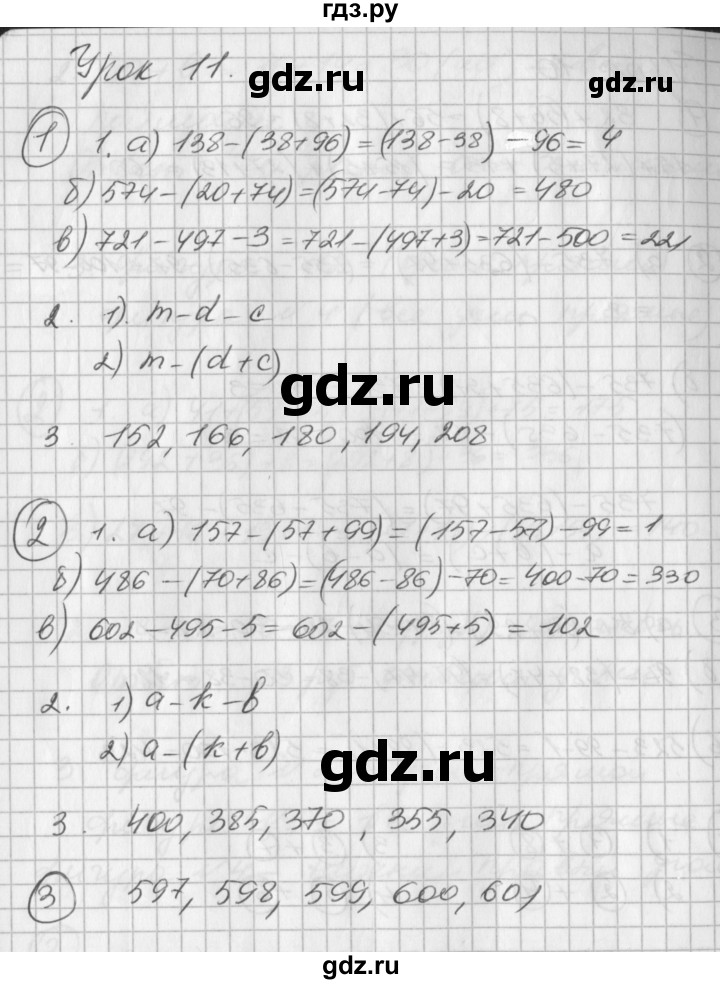 гдз.ру
Урок 11.
gdz.ru
1 1. а) 138-(38+96)=(138-38)-96= 4
б) 574-(20+74)=(574-74)-20 =480
в) 721-497-3 =721-(497+3)=721-500 =221
2. 1). m-d-c
2) m-(d+c)
gdz.ru
3 152, 166, 180, 194, 208
2 1. а) 157-(57+99)=(157-57)-99=1
б) 486 -(70+86)=(486-86)-70= 400-70=330
в) 602-495-5= 602-(495+5) = 102
2. 1) a-k-b
2) a-(k+b)
gdz.ru
3. 400, 385, 370, 355, 340
3 597, 598, 599, 600, 601
gdz.ru